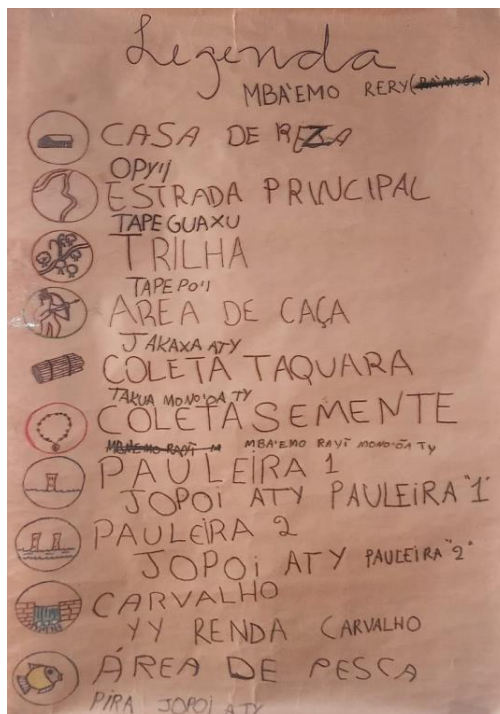 Legenda
MBA'EMO RERY
CASA DE REZA
OPY'I
ESTRADA PRINCIPAL
TAPE GUAXU
TRILHA
TAPE PO'I
AREA DE CAÇA
JAKAXA ATY
COLETA TAQUARA
TAKUA MONO'ÕA TY
COLETA SEMENTE
MBA'EMO RAYĨ MONO'ÕA TY
PAULEIRA 1
JOPOI ATY PAULEIRA "1"
PAULEIRA 2
JOPOI ATY PAULEIRA "2"
CARVALHO
YY RENDA CARVALHO
ÁREA DE PESCA
PIRA JOPOI ATY